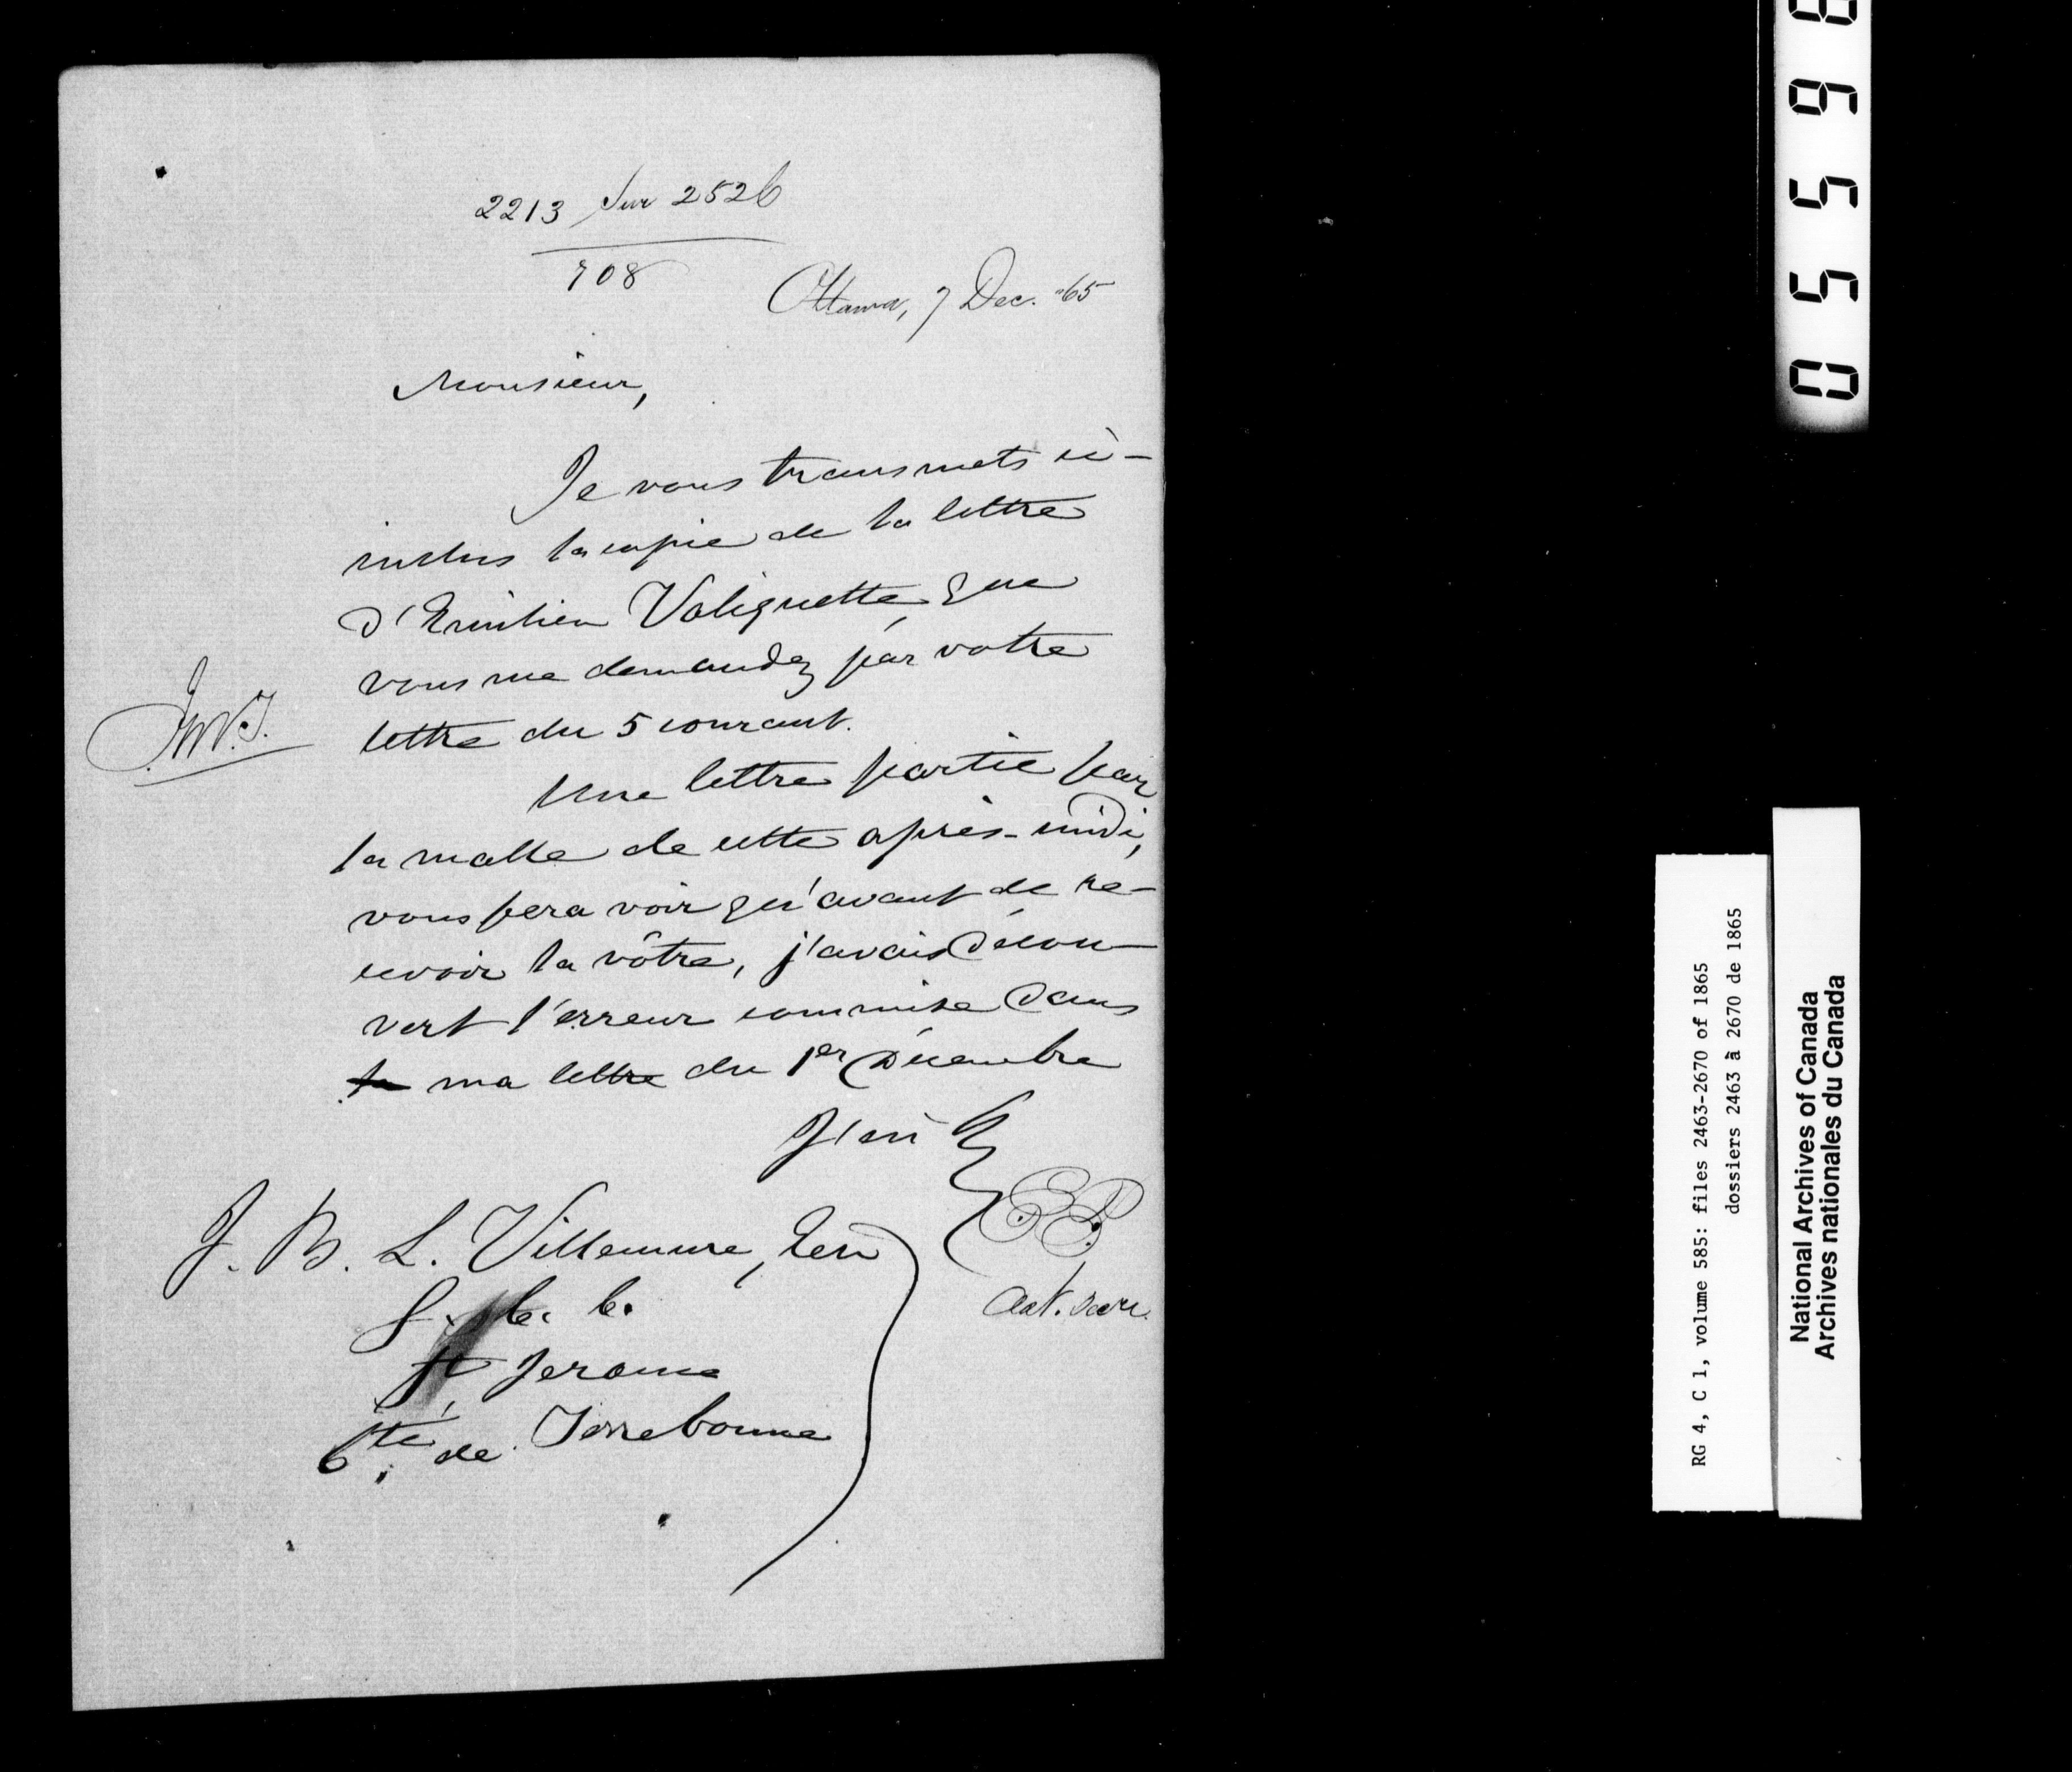 2213 Sur 2526
708
Ottawa, 7 Dec. -65
Monsieur,
Je vous transmets ci-
inclus la copie de la lettre
d'Emilien Valiquette, que
vous me demandez par votre
lettre du 5 courant.
Une lettre partie par
la malle de cette après-midi,
vous fera voir qu'avant de re-
cevoir la vôtre, j'avais décou-
vert l'erreur commise dans
la ma lettre du 1er Décembre
J'ai
J. B. L. Villemure, Ecr
St Jerome
Cté de Terrebonne
05596
RG 4, C 1, volume 585: files 2463-2670 of 1865
dossiers 2463 à 2670 de 1865
National Archives of Canada
Archives nationales du Canada